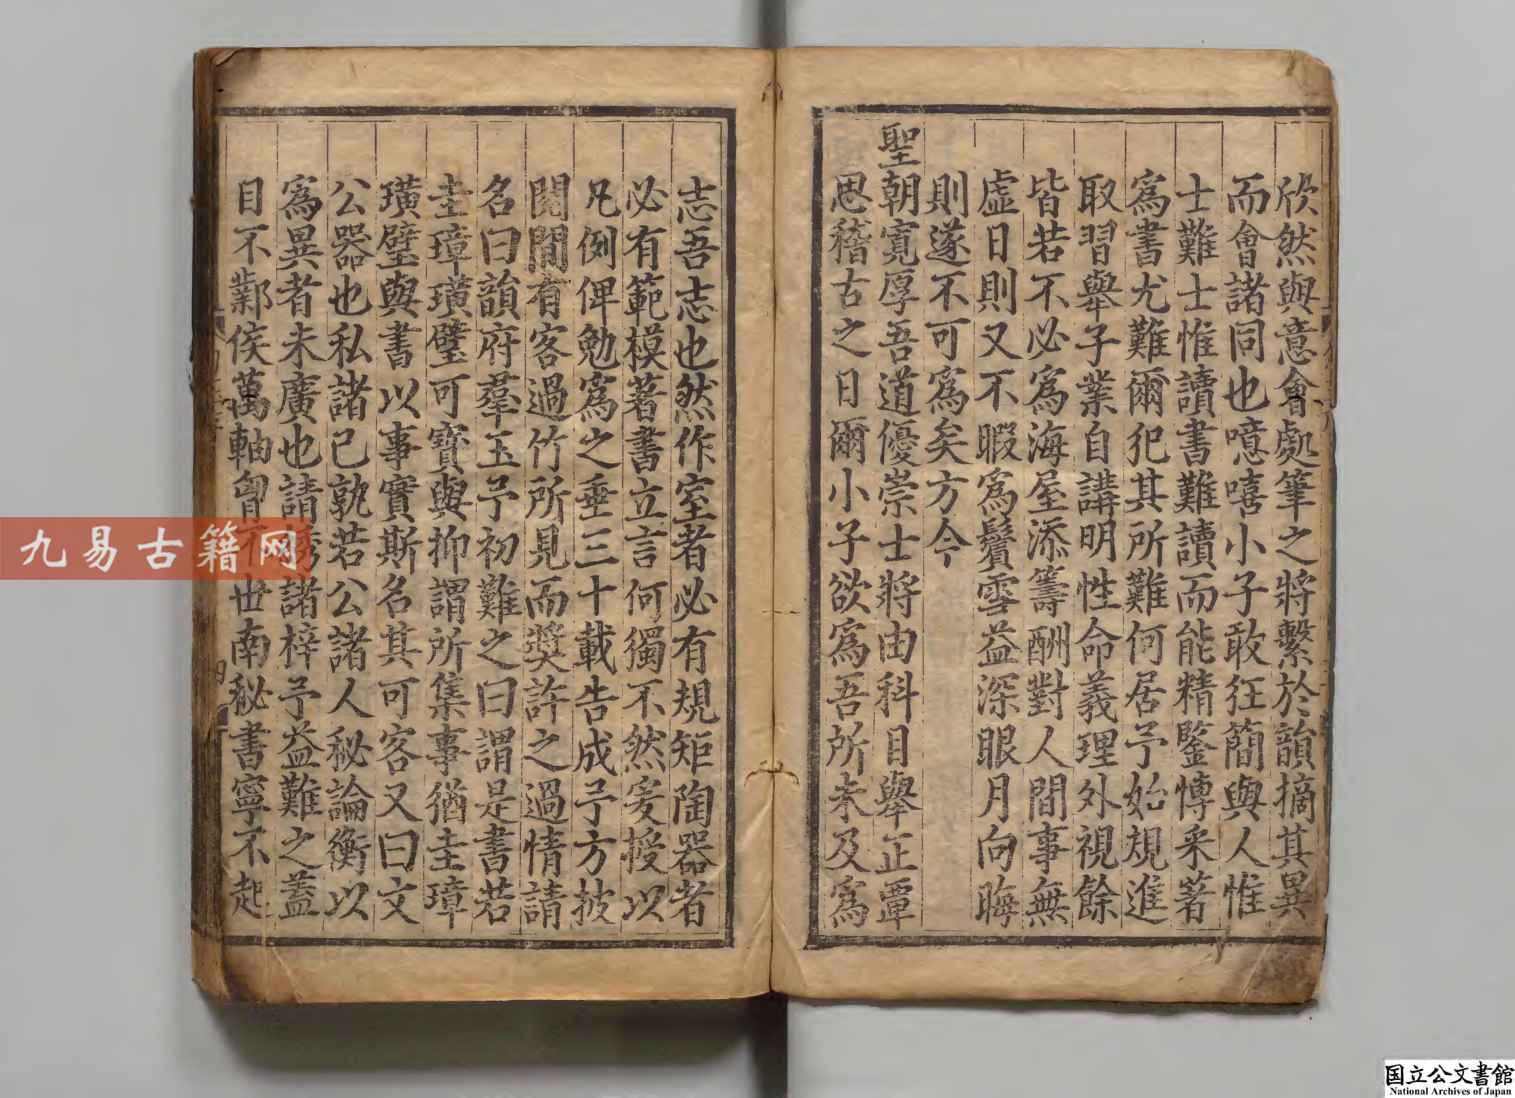 欣然與意會處筆之將繫於韻摘其異
而會諸同也噫嘻小子敢狂簡與人惟
士難士惟讀書難讀而能精鑒愽釆著
爲書尤難爾犯其所難何居予始規進
取習舉子業自講明性命義理外視餘
皆若不必爲海屋添籌酬對人間事無
虚日則又不暇爲鬢雪益深眼月向晦
則遂不可爲矣方今
聖朝寛厚吾道優崇士將由科目舉正覃
思稽古之日爾小子欲爲吾所未及爲
志吾志也然作室者必有規矩陶器者
必有範模著書立言何獨不然爰授以
凡例俾勉爲之垂三十載告成予方披
閲間有客過竹所見而奬許之過情請
名曰韻府羣玉予初難之曰謂是書若
圭璋璜璧可寳與抑謂所集事猶圭璋
璜璧與書以事寳斯名其可客又曰文
公器也私諸已孰若公諸人秘論衡以
爲異者未廣也請諸梓予益難之蓋
目不鄴侯萬軸胷不世南秘書寧不起
四
九易古籍网
国立公文書館
National Archives of Japan